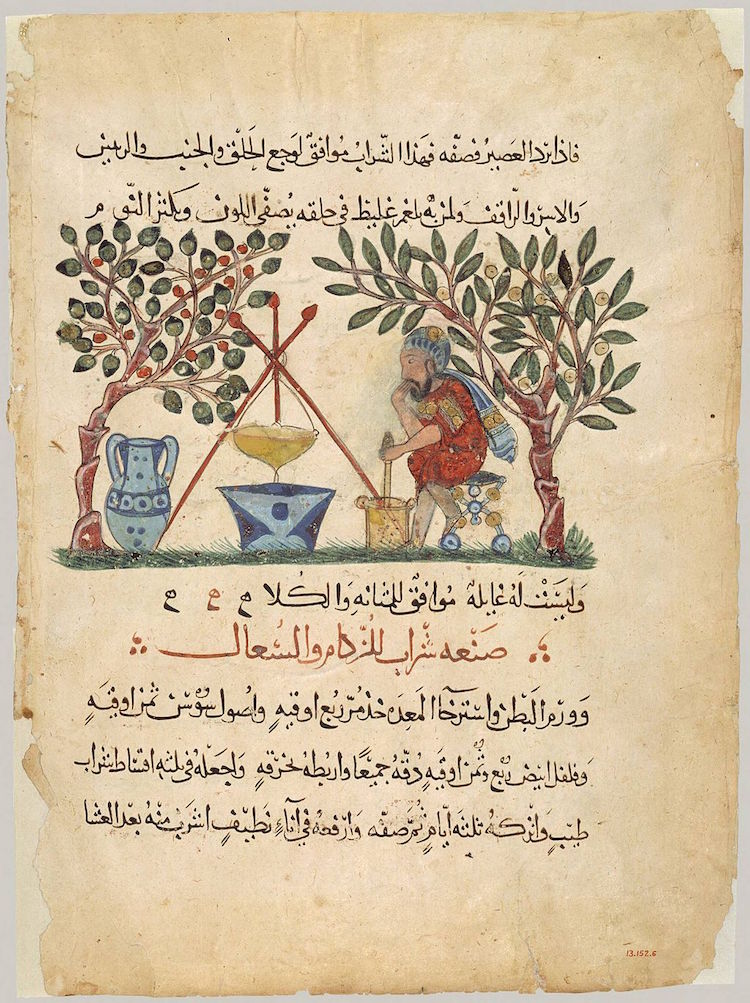 فاذا برد العصير فصفه فهذا الشراب موافق لوجع الحلق والجنب والرىىن
والاسر والراقف ولمن به بلغم غليظ في حلقه يصفي اللون ويكثر النوم
وليست له غايله موافق للمثانه والكلا ح ح ح
صنعه شراب للزكام والسعال
وورم البطن واسترخا المعده خذ مر ربع اوقيه واصول سوس ثمن اوقيه
وفلفل ابيض ربع وثمن اوقيه دقه جميعا واربطه بخرقه واجعله في ثلثه اقساط شراب
طيب واتركه ثلثه ايام ثم صفه وارفعه في اناء نظيف اشرب منه بعد العشا
13.152.6